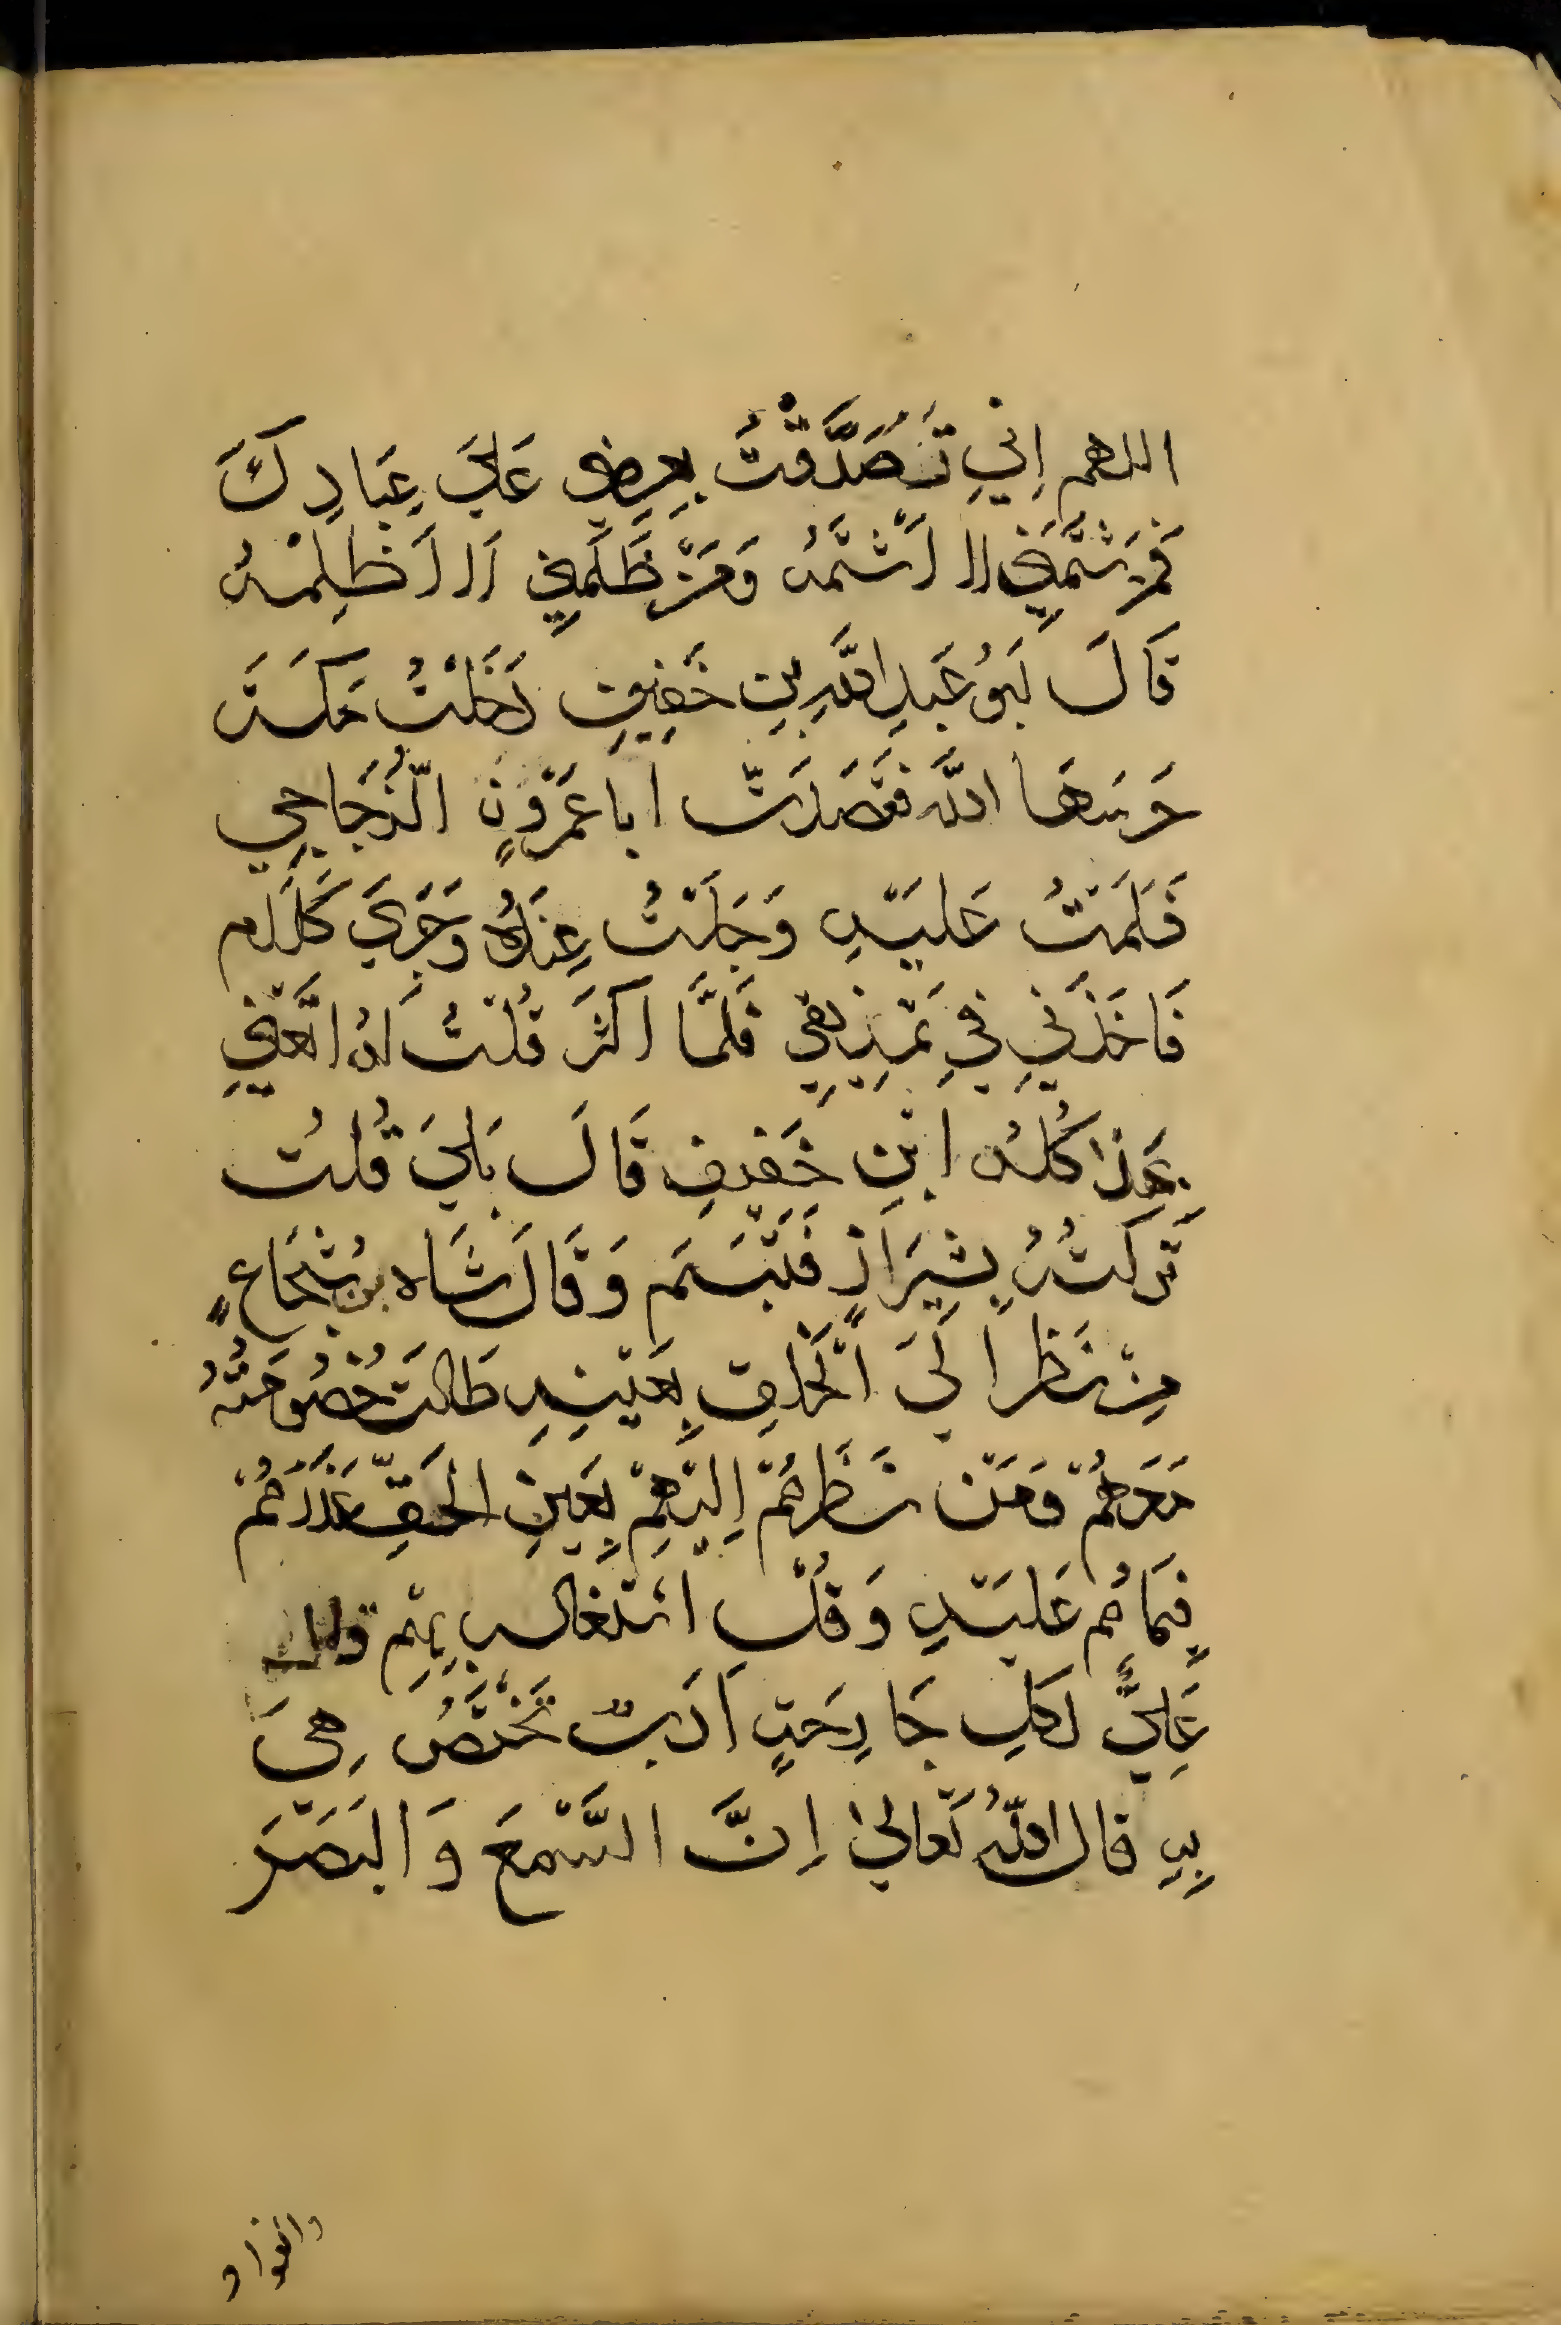 اللهم اِنّي تَصَدَّقْتُ بِعِرضِي عَلَيَ عِبَادِكَ
فَمَن شَتَمَنِي لا اَشْتمُه وَمَنْ ظَلَمَنِي لَا اَظلِمْهُ
قَالَ اَبُو عَبدِ اللهِ بنِ خَفِيفٍ دَخَلْتُ مَكَةَ
حَرسَهَا اللَّه فَقَصَدَتّ ابا عَمْروٍن الزُّجَاجِي
فَسَلَمتُ عَليَهِ وَجَلَسْتُ عِندَهُ وَجَرَيَ كَلَام
فَاخَذَنِي فِي تَمزِيقِي فَلَمَّا اكثَرَ قُلْتُ لهُ اتَعْنِي
بِهَذا كُلهِ ابْنِ خَفِيفِ قَالَ بَلَيَ قُلتُ
تَركتُهُ بِشِيَرَازٍ فَتَبَسَمَ وَقَالَ شَاه بن شُجَاعٍ
مِنْ نَظر اِلَيَ الْخَلقِ بِعَيْنِهِ طَالت خُصُومَتُهُ
مَعَهُمْ وَمَنْ نَظرَهُمْ اِليْهِمْ بِعَينِ الحَقِّ عَذَرَهُمْ
فِيمَا هُم عَليَهِ وَقُلّ اشتغالِه بِهِمْ وقال
عَلِيٌّ لكلِ جَارِحَةٍ اَدَبٌ تَخْتَصُّ هِيَ
بِهِ قال اللهُ تَعاليٰ اِنَّ السَّمْعَ وَالبَصَرَ
والفواد